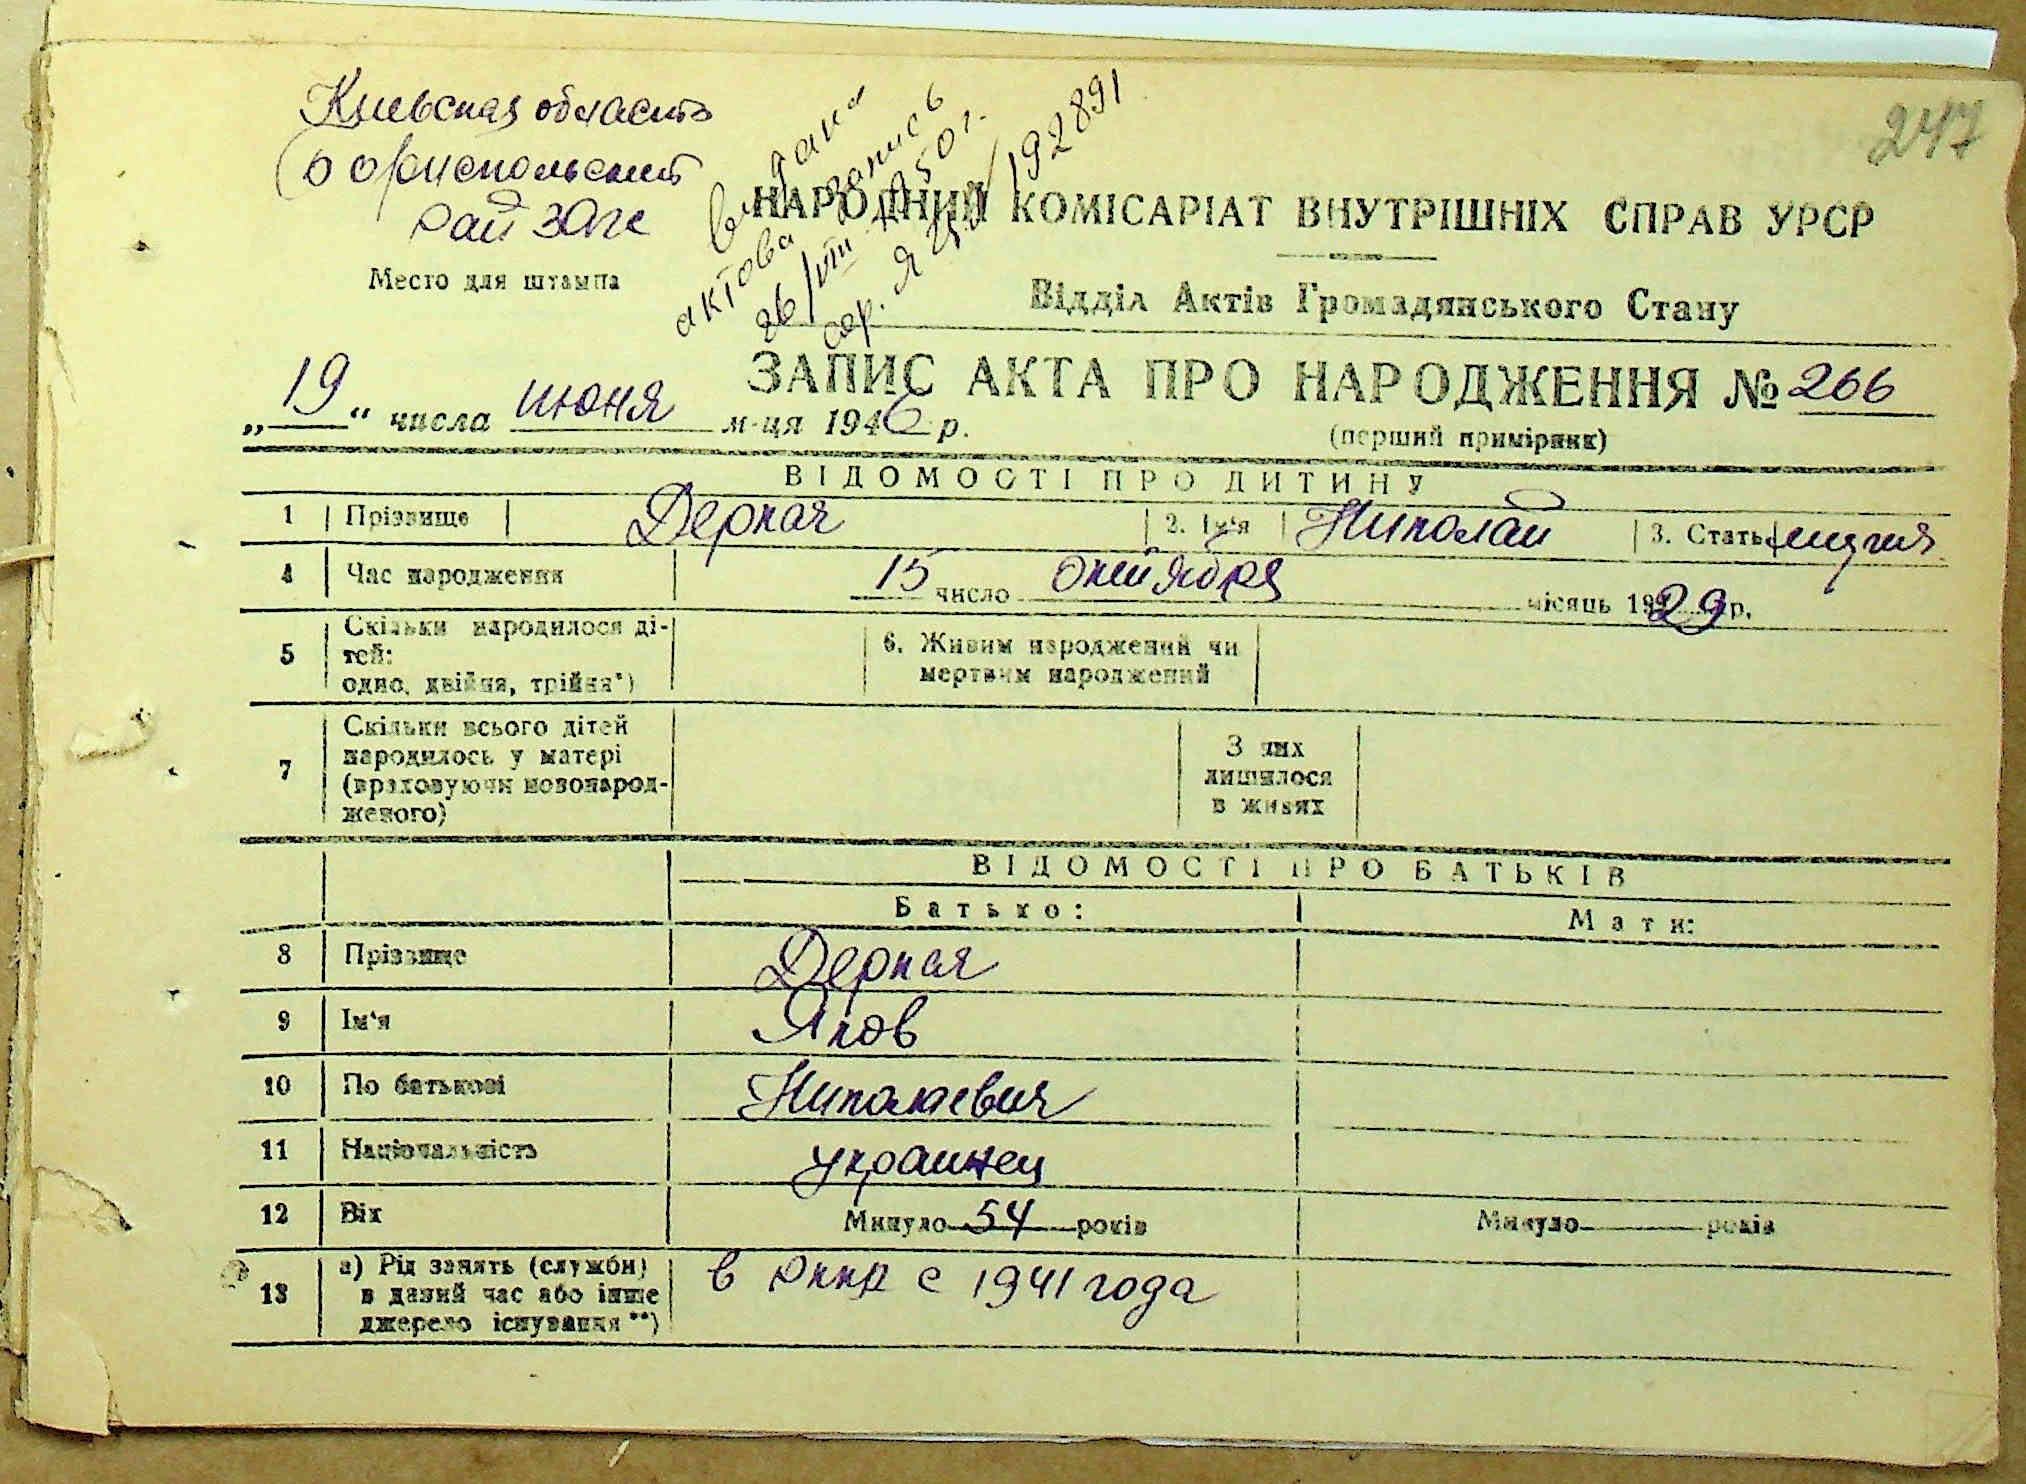 247
Киевская область
Бориспольский
рай ЗАГС
Место для штампа
видана
актова запись
26/VIII 1950 г.
192891
НАРОДНИЙ КОМІСАРІАТ ВНУТРІШНІХ СПРАВ УРСР
Відділ Актів Громадянського Стану
ЗАПИС АКТА ПРО НАРОДЖЕННЯ № 266
„19“ числа июня м-ця 1946 р.
(перший примірник)
ВІДОМОСТІ ПРО ДИТИНУ
1 Прізвище Деркач 2. Ім'я Николай 3. Стать мужск
4 Час народження 15 число октября місяць 1929 р.
5 Скільки народилося ді-
тей:
одно, двійня, трійня*)
6. Живим народжений чи
мертвим народжений
7 Скільки всього дітей
народилось у матері
(враховуючи новонарод-
женого)
З них
лишилося
в живих
ВІДОМОСТІ ПРО БАТЬКІВ
Батько: Мати:
8 Прізвище Деркач
9 Ім'я Яков
10 По батькові Николаевич
11 Національність украинец
12 Вік Минуло 54 років Минуло років
13 а) Рід занять (служби)
в даний час або інше
джерело існування **)
в РККА с 1941 года